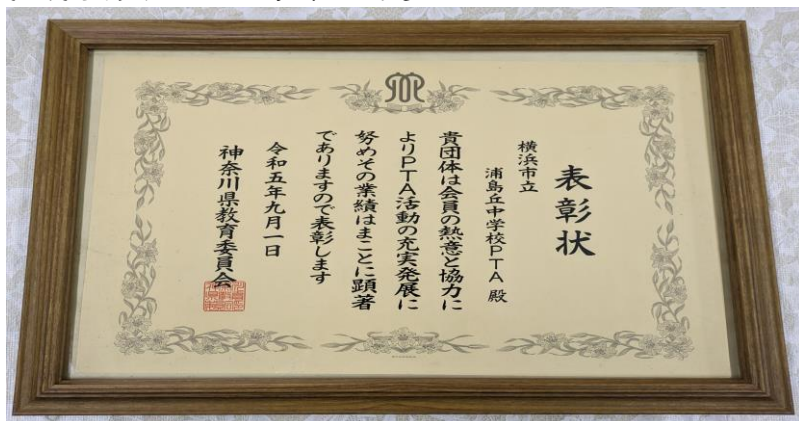 表彰状
横浜市立
浦島丘中学校PTA 殿
貴団体は会員の熱意と協力に
よりPTA活動の充実発展に
努めその業績はまことに顕著
でありますので表彰します
令和五年九月一日
神奈川県教育委員会